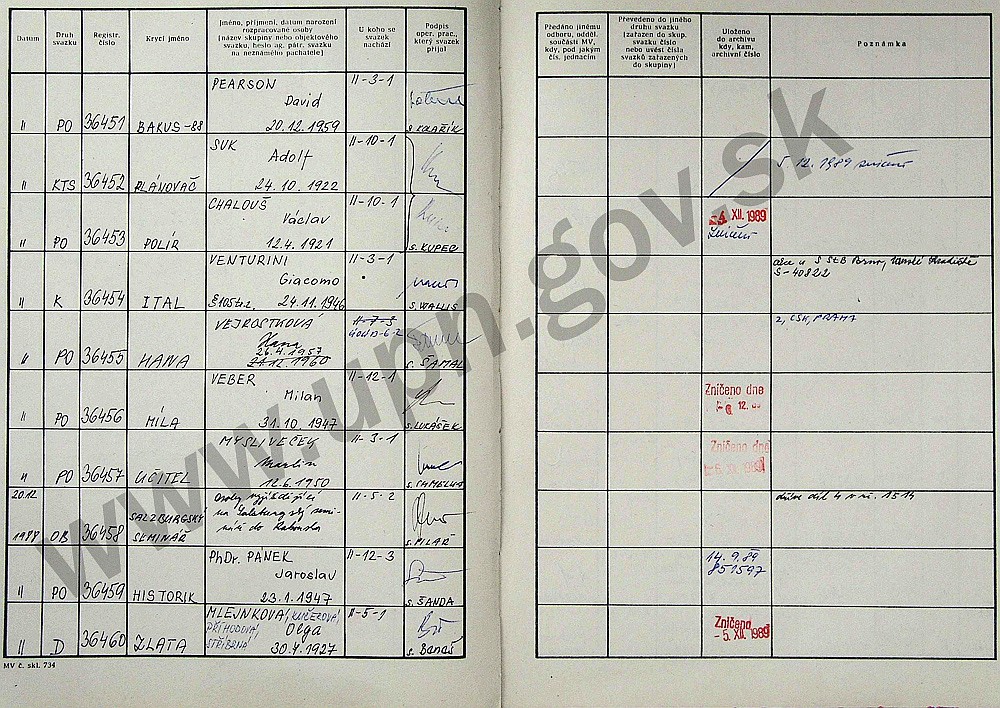 Datum
Druh svazku
Registr. číslo
Krycí jméno
Jméno, příjmení, datum narození
rozpracované osoby
(název skupiny nebo objektového
svazku, heslo ag. pátr. svazku
na neznámého pachatele)
U koho se
svazek
nachází
Podpis
oper. prac.,
který svazek
přijal
Předáno jinému
odboru, odděl.
součásti MV,
kdy, pod jakým
čís. jednacím
Převedeno do jiného
druhu svazku
(zařazen do skup.
svazku číslo
nebo uvést čísla
svazků zařazených
do skupiny)
Uloženo
do archivu
kdy, kam,
archivní číslo
Poznámka
PEARSON II-3-1
David
II PO 36451 BAKUS-88 20.12.1959 s. KOLAŘÍK
SUK II-10-1
Adolf
II KTS 36452 PLÁNOVAČ 24.10.1922
5 12. 1989
CHALOUŠ II-10-1
Václav
II PO 36453 POLÍR 12.4.1921 s. KUPEC
-4. XII. 1989
VENTURINI II-3-1
Giacomo
II K 36454 ITAL 24.11.1946 s. WALLIS
S-40822
VEJROSTKOVÁ II-7-3
Hana
26.4.1957
II PO 36455 HANA 21.12.1960 s. ŠAMAL
2, ČSK, PRAHA
VEBER II-12-1
Milan
II PO 36456 MÍLA 31.10.1947 s. LUKÁŠEK
Zničeno dne
MYSLIVEČEK II-3-1
Martin
II PO 36457 UČITEL 12.6.1950 s. CHMELKA
Zničeno dne
20.12. Osoby vyjíždějící II-5-2
SALZBURGSKÝ
1988 OB 36458 SEMINÁŘ s. PILAŘ
PhDr. PÁNEK II-12-3
Jaroslav
II PO 36459 HISTORIK 23.1.1947 s. ŠANDA
14.9.89
851597
MLEJNKOVÁ, KUČEROVÁ, II-5-1
PŘÍHODOVÁ, Olga
STŘÍBRNÁ
II D 36460 ZLATA 30.4.1927 s. Banáš
Zničeno
-5. XII. 1989
MV č. skl. 734
www.upn.gov.sk